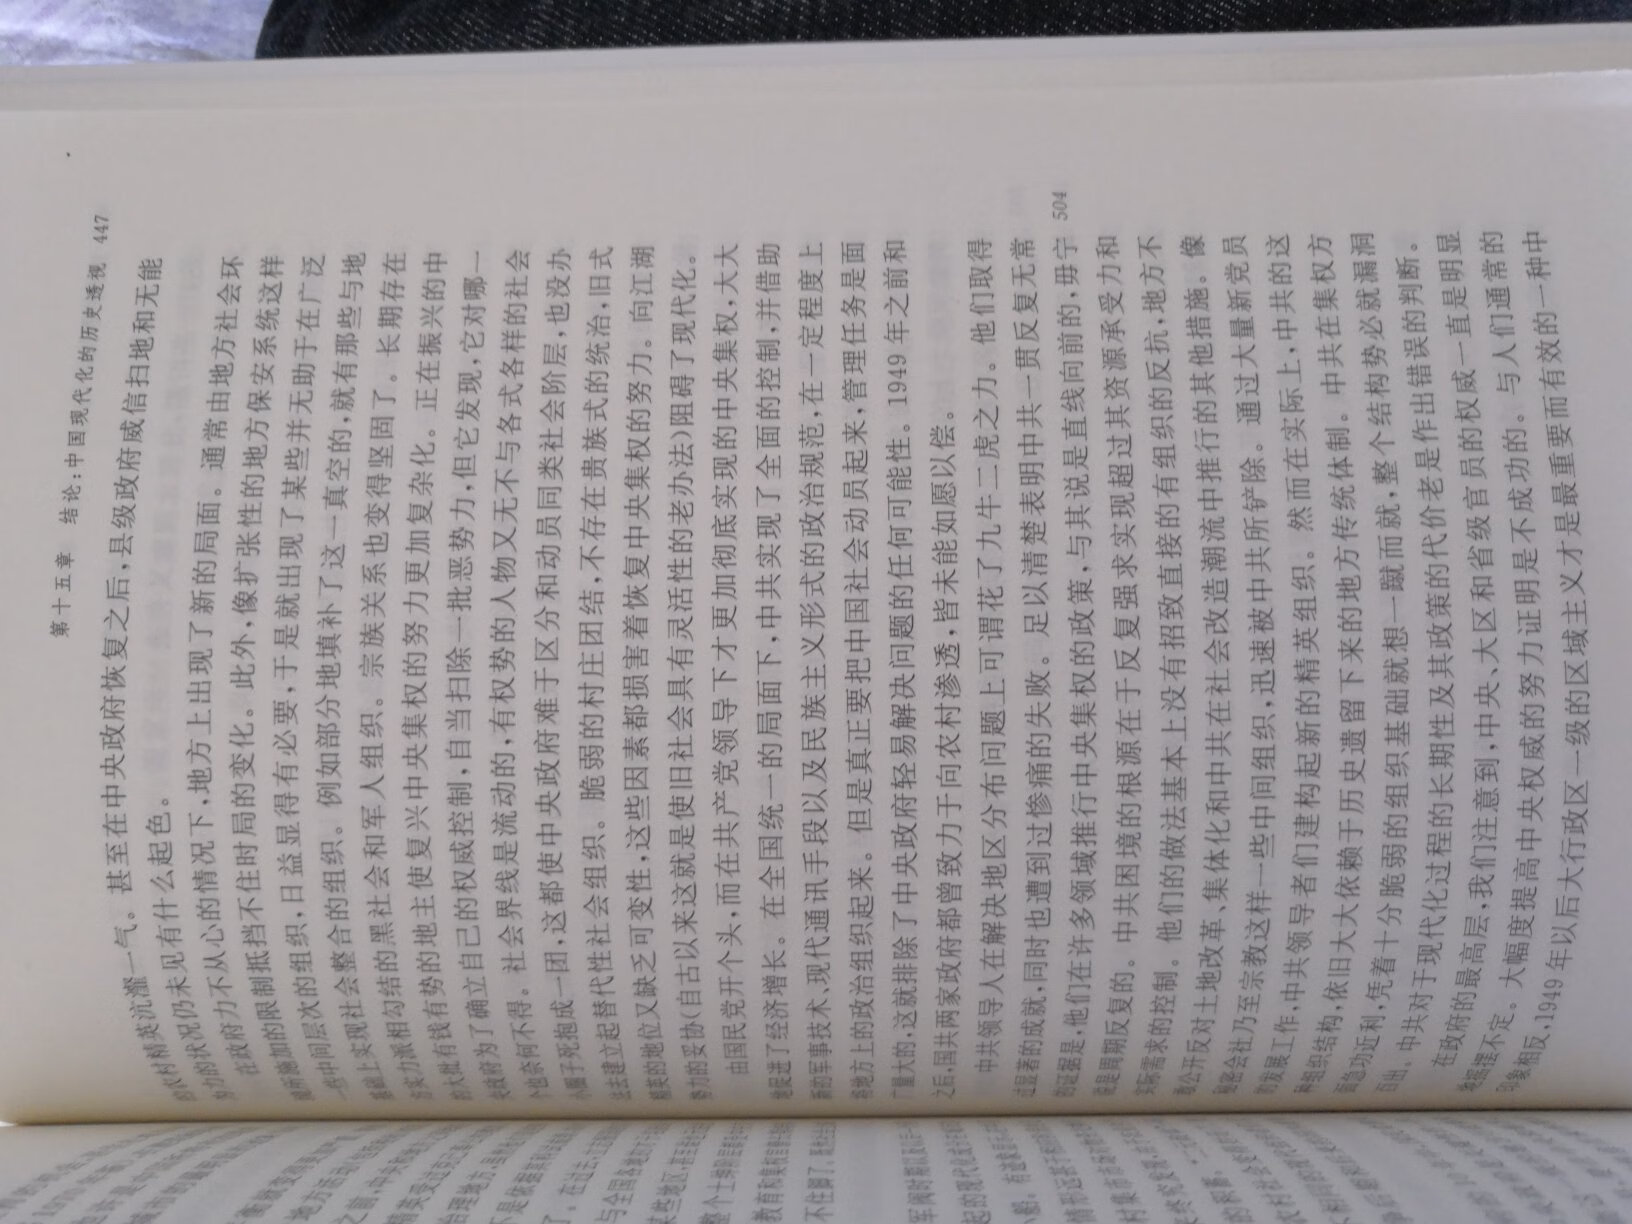 第十五章 结论:中国现代化的历史透视 447
的农村精英沆瀣一气。甚至在中央政府恢复之后,县级政府威信扫地和无能
为力的状况仍未见有什么起色。
在政府力不从心的情况下,地方上出现了新的局面。通常由地方社会环
境所施加的限制抵挡不住时局的变化。此外,像扩张性的地方保安系统这样
一些中间层次的组织,日益显得有必要,于是就出现了某些并无助于在广泛
基础上实现社会整合的组织。例如部分地填补了这一真空的,就有那些与地
方实力派相勾结的黑社会和军人组织。宗族关系也变得坚固了。长期存在
的大批有钱有势的地主使复兴中央集权的努力更加复杂化。正在振兴的中
央政府为了确立自己的权威控制,自当扫除一批恶势力,但它发现,它对哪一
个也奈何不得。社会界线是流动的,有权势的人物又无不与各式各样的社会
小圈子死抱成一团,这都使中央政府难于区分和动员同类社会阶层,也没办
法去建立起替代性社会组织。脆弱的村庄团结,不存在贵族式的统治,旧式
精英的地位又缺乏可变性,这些因素都损害着恢复中央集权的努力。向江湖
势力的妥协(自古以来这就是使旧社会具有灵活性的老办法)阻碍了现代化。
由国民党开个头,而在共产党领导下才更加彻底实现的中央集权,大大
地促进了经济增长。在全国统一的局面下,中共实现了全面的控制,并借助
新的军事技术、现代通讯手段以及民族主义形式的政治规范,在一定程度上
将地方上的政治组织起来。但是真正要把中国社会动员起来,管理任务是面
广量大的,这就排除了中央政府轻易解决问题的任何可能性。1949年之前和
之后,国共两家政府都曾致力于向农村渗透,皆未能如愿以偿。
中共领导人在解决地区分布问题上可谓花了九牛二虎之力。他们取得
过显著的成就,同时也遭到过惨痛的失败。足以清楚表明中共一贯反复无常
的证据是,他们在许多领域推行中央集权的政策,与其说是直线向前的,毋宁 504
说是周期反复的。中共困境的根源在于反复强求实现超过其资源承受力和
实际需求的控制。他们的做法基本上没有招致直接的有组织的反抗,地方不
敢公开反对土地改革、集体化和中共在社会改造潮流中推行的其他措施。像
秘密会社乃至宗教这样一些中间组织,迅速被中共所铲除。通过大量新党员
的发展工作,中共领导者们建构起新的精英组织。然而在实际上,中共的这
种组织结构,依旧大大依赖于历史遗留下来的地方传统体制。中共在集权方
面急功近利,凭着十分脆弱的组织基础就想一蹴而就,整个结构势必就漏洞
百出。中共对于现代化过程的长期性及其政策的代价老是作出错误的判断。
在政府的最高层,我们注意到,中央、大区和省级官员的权威一直是明显
地摇摆不定。大幅度提高中央权威的努力证明是不成功的。与人们通常的
印象相反,1949年以后大行政区一级的区域主义才是最重要而有效的一种中